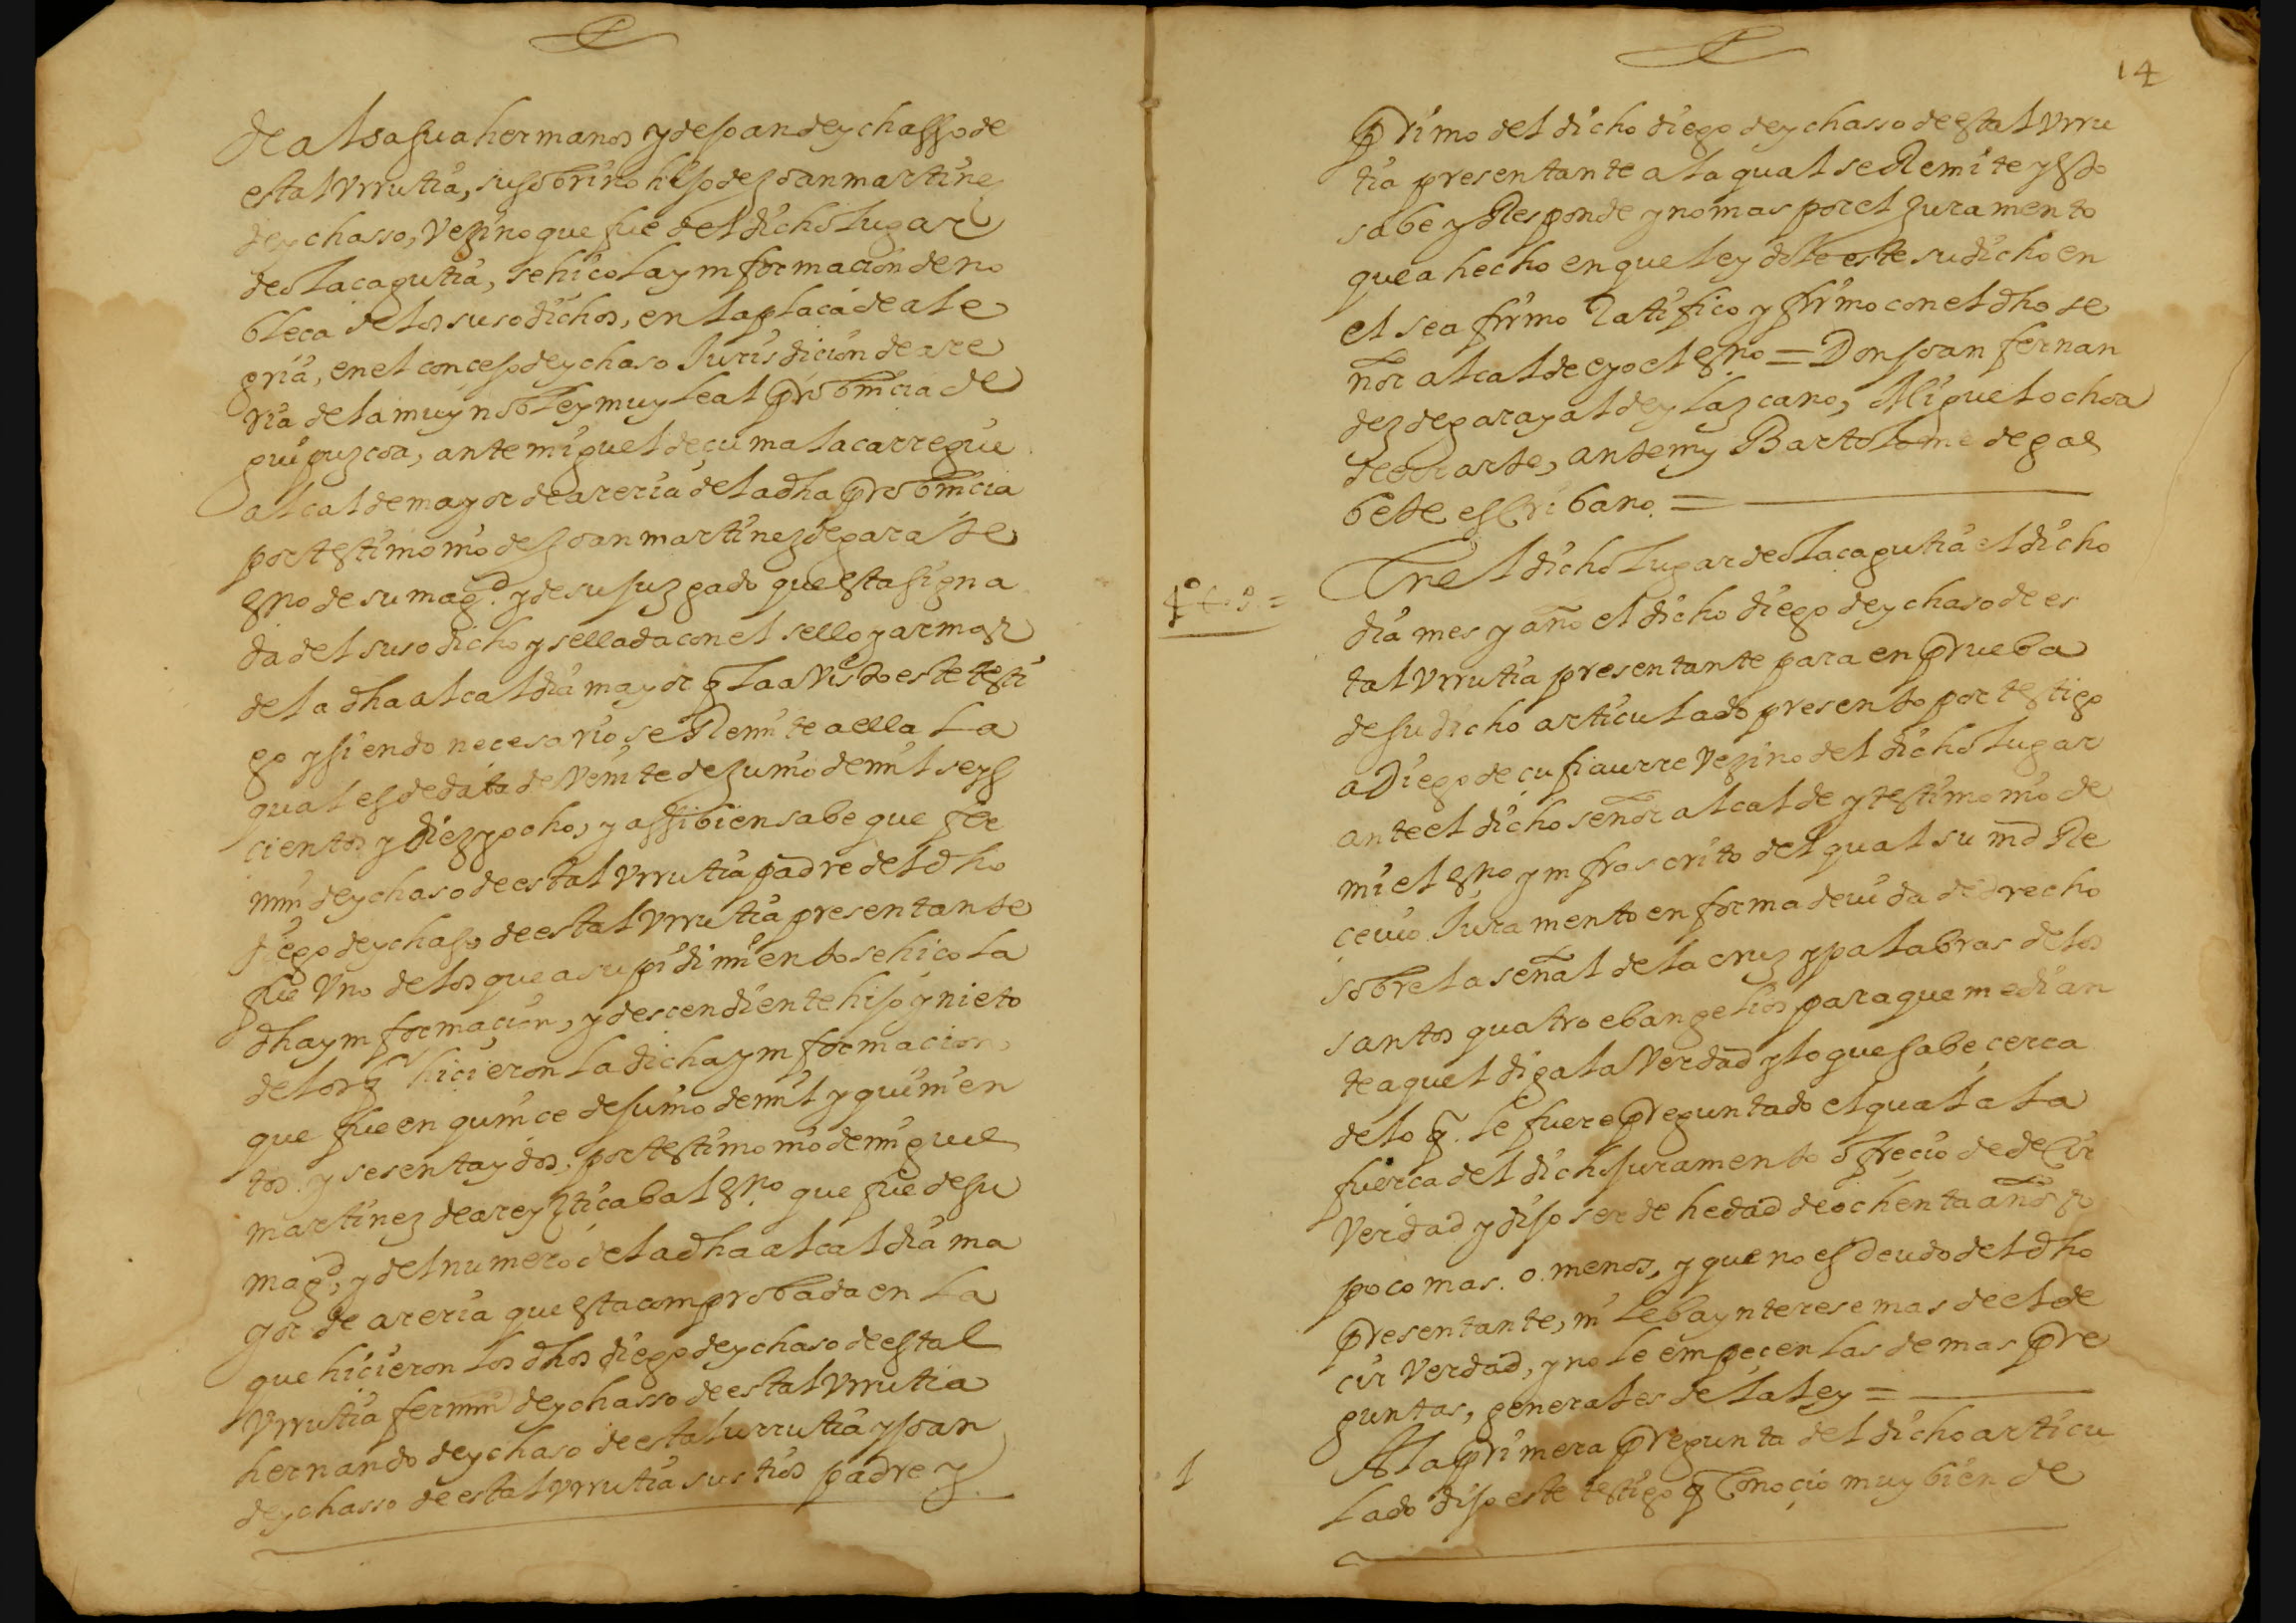 de alsasua hermanos y de joan de ychasso de
estal Vrrutia, su sobrino hijo de joan martinez
de ychasso, Vezino que fue del dicho lugar
de olacagutia, se hico la ymformacion de no
bleca de los suso dichos, en la placa de ale
gria, en el concejo de ychaso Jurisdicion de are
ria de la muy noble y muy leal probincia de
guipuzcoa, ante miguel de cumalacarregui
alcalde mayor de areria de la dha probincia
por testimonio de joan martinez de garate
esno de su magd. y de su juzgado que esta signa
da del suso dicho y sellada con el sello y armas
de la dha alcaldia mayor q la a visto este testi
go y siendo necesario se Remite a ella La
qual es de data de Veinte de zunio de mil seys
cientos y diez y ocho, y assi bien sabe que fer
min de ychaso de estal Vrrutia padre del dho
diego de ychaso de estal Vrrutia presentante
fue Vno de los que a su pidimiento se hico La
dha ymformacion, y descendiente hijo y nieto
de los q hicieron la dicha ymformacion,
que fue en quince de junio de mil y quinien
tos y sesenta y dos, por testimonio de miguel
martinez de areyzticabal esno que fue de su
magd, y del numero de la dha alcaldia ma
yor de areria que esta comprobada en La
que hicieron los dhos diego de ychaso de estal
Vrrutia fermin de ychasso de estal Vrrutia
hernando de ychaso de estal urrutia y joan
de ychasso de estal Vrrutia sus tios padre y
14
primo del dicho diego de ychasso de estal Vrru
tia presentante a la qual se Remite y esto
sabe y Responde y no mas por el Juramento
que a hecho en que leydole este su dicho en
el se afirmo Ratifico y firmo con el dho se
ñor alcalde e yo el esno = Don joan fernan
dez de garayalde y lazcano, Miguel ochoa
de ociarte, ante my Bartolome de gal
bete escribano. =
4º tº. =
En el dicho lugar de olacagutia el dicho
dia mes y año el dicho diego de ychaso de es
tal Vrrutia presentante para en prueba
de su dicho articulado presento por testigo
a Diego de cufiaurre Vezino del dicho lugar
ante el dicho señor alcalde y testimonio de
mi el esno ymfrascrito del qual su md Re
ceuio Juramento en forma deuida de drecho
sobre la señal de la cruz y palabras de los
santos quatro ebangelios para que median
te aquel diga la Verdad y lo que sabe cerca
de lo q. le fuere preguntado el qual a la
fuerca del dicho juramento ofrecio de decir
Verdad y dijo ser de hedad de ochenta años
poco mas. o. menos, y que no es deudo del dho
presentante, ni le ba ynterese mas de el de
cir Verdad, y no le empecen las demas pre
guntas, generales de la ley =
1
A la primera pregunta del dicho articu
lado dijo este testigo q Conocio muy bien de